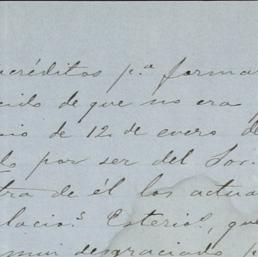 créditos p.ª forma
cido de que no era
io de 12 de enero de
lo por ser del Sor.
tra de él los actua
lacio.s Esterio.s, que
muy desgraciado p